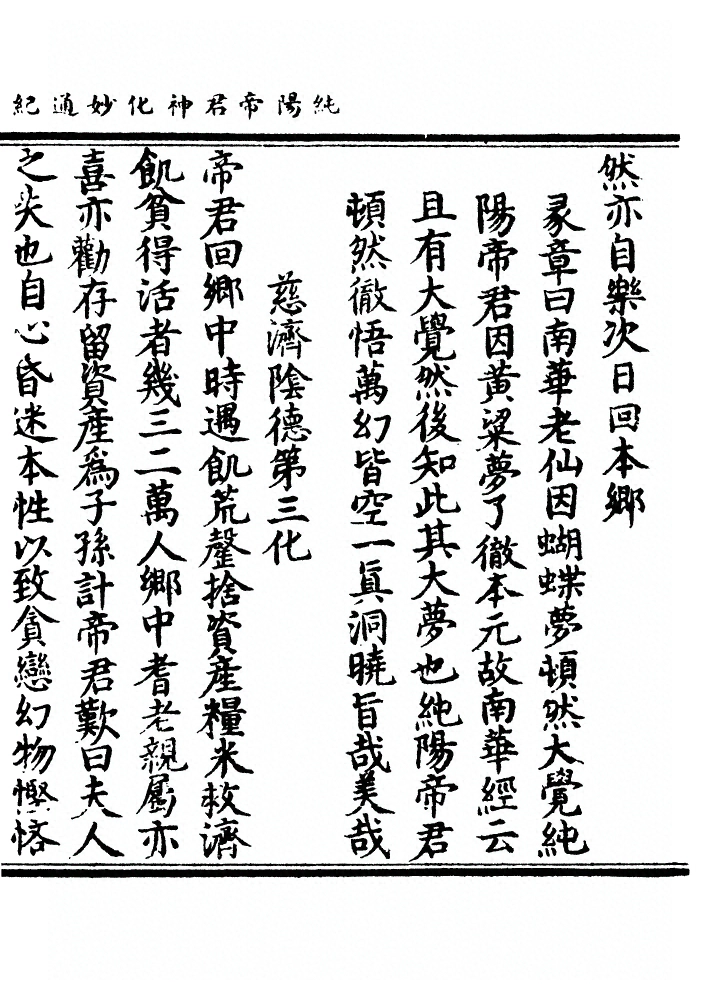 純陽帝君神化妙通紀
然亦自樂次日回本鄉
彖章曰南華老仙因蝴蝶夢頓然大覺純
陽帝君因黃粱夢了徹本元故南華經云
且有大覺然後知此其大夢也純陽帝君
頓然徹悟萬幻皆空一眞洞曉旨哉美哉
慈濟陰德第三化
帝君回鄉中時遇飢荒罄捨資產糧米救濟
飢貧得活者幾三二萬人鄉中耆老親屬亦
喜亦勸存留資產爲子孫計帝君歎曰夫人
之失也自心昏迷本性以致貪戀幻物慳悋